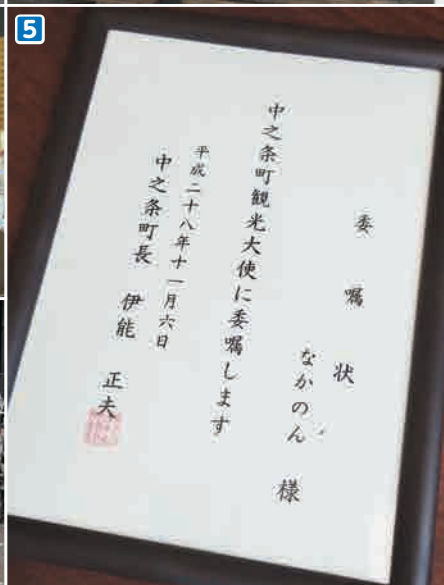 5
委嘱状
なかのん 様
中之条町観光大使に委嘱します
平成二十八年十一月六日
中之条町長 伊能 正夫